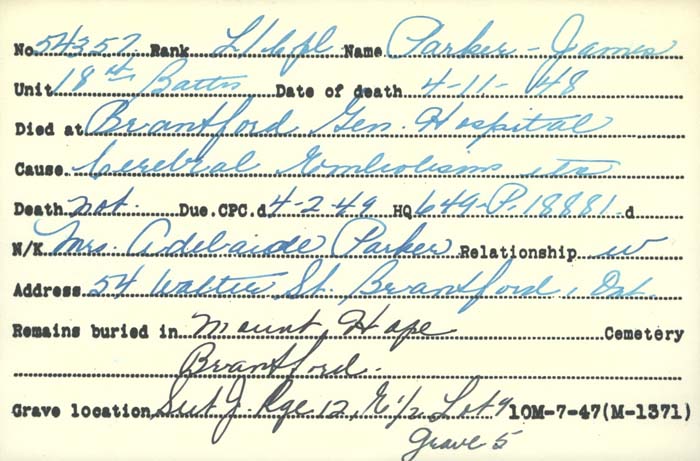 No. 54357 Rank L/Cpl Name Parker - James
Unit 18th Battn Date of death 4-11-48
Died at Brantford Gen. Hospital
Cause Cerebral Embolisms etc
Death not. Due.CPC.d 4-2-49 HQ 649-P-18881 d
N/K Mrs. Adelaide Parker Relationship w
Address 54 Walter St. Brantford, Ont.
Remains buried in Mount Hope Cemetery
Brantford.
Grave location Sect J. Rge 12, E 1/2 Lot 9 10M-7-47(M-1371)
Grave 5